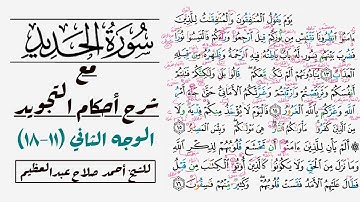 سورة الحديد
مع
شرح أحكام التجويد
الوجه الثاني (١١-١٨)
للشيخ أحمد صلاح عبدالعظيم
يَوْمَ يَقُولُ ٱلْمُنَٰفِقُونَ وَٱلْمُنَٰفِقَٰتُ لِلَّذِينَ
ءَامَنُوا۟ ٱنظُرُونَا نَقْتَبِسْ مِن نُّورِكُمْ قِيلَ ٱرْجِعُوا۟ وَرَآءَكُمْ فَٱلْتَمِسُوا۟ نُورًا
فَضُرِبَ بَيْنَهُم بِسُورٍ لَّهُۥ بَابٌۢ بَاطِنُهُۥ فِيهِ ٱلرَّحْمَةُ وَظَٰهِرُهُۥ مِن قِبَلِهِ
ٱلْعَذَابُ ١٣ يُنَادُونَهُمْ أَلَمْ نَكُن مَّعَكُمْ قَالُوا۟ بَلَىٰ وَلَٰكِنَّكُمْ فَتَنتُمْ
أَنفُسَكُمْ وَتَرَبَّصْتُمْ وَٱرْتَبْتُمْ وَغَرَّتْكُمُ ٱلْأَمَانِىُّ حَتَّىٰ جَآءَ أَمْرُ
ٱللَّهِ وَغَرَّكُم بِٱللَّهِ ٱلْغَرُورُ ١٤ فَٱلْيَوْمَ لَا يُؤْخَذُ مِنكُمْ فِدْيَةٌ وَلَا
مِنَ ٱلَّذِينَ كَفَرُوا۟ مَأْوَىٰكُمُ ٱلنَّارُ هِىَ مَوْلَىٰكُمْ وَبِئْسَ ٱلْمَصِيرُ ١٥
أَلَمْ يَأْنِ لِلَّذِينَ ءَامَنُوٓا۟ أَن تَخْشَعَ قُلُوبُهُمْ لِذِكْرِ ٱللَّهِ
وَمَا نَزَلَ مِنَ ٱلْحَقِّ وَلَا يَكُونُوا۟ كَٱلَّذِينَ أُوتُوا۟ ٱلْكِتَٰبَ مِن قَبْلُ
فَطَالَ عَلَيْهِمُ ٱلْأَمَدُ فَقَسَتْ قُلُوبُهُمْ وَكَثِيرٌ مِّنْهُمْ فَٰسِقُونَ ١٦